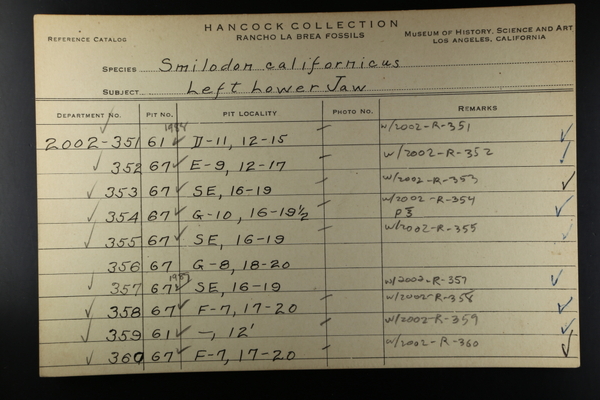 HANCOCK COLLECTION
REFERENCE CATALOG
RANCHO LA BREA FOSSILS
MUSEUM OF HISTORY, SCIENCE AND ART
LOS ANGELES, CALIFORNIA
SPECIES Smilodon californicus
SUBJECT Left Lower Jaw
DEPARTMENT NO. PIT NO. PIT LOCALITY PHOTO NO. REMARKS
2002-351 61 D-11, 12-15 w/2002-R-351
352 67 E-9, 12-17 w/2002-R-352
353 67 SE, 16-19 w/2002-R-353
354 67 G-10, 16-19½ w/2002-R-354
355 67 SE, 16-19 w/2002-R-355
356 67 G-8, 18-20
357 67 SE, 16-19 w/2002-R-357
358 67 F-7, 17-20 w/2002-R-358
359 61 —, 12' w/2002-R-359
360 67 F-7, 17-20 w/2002-R-360